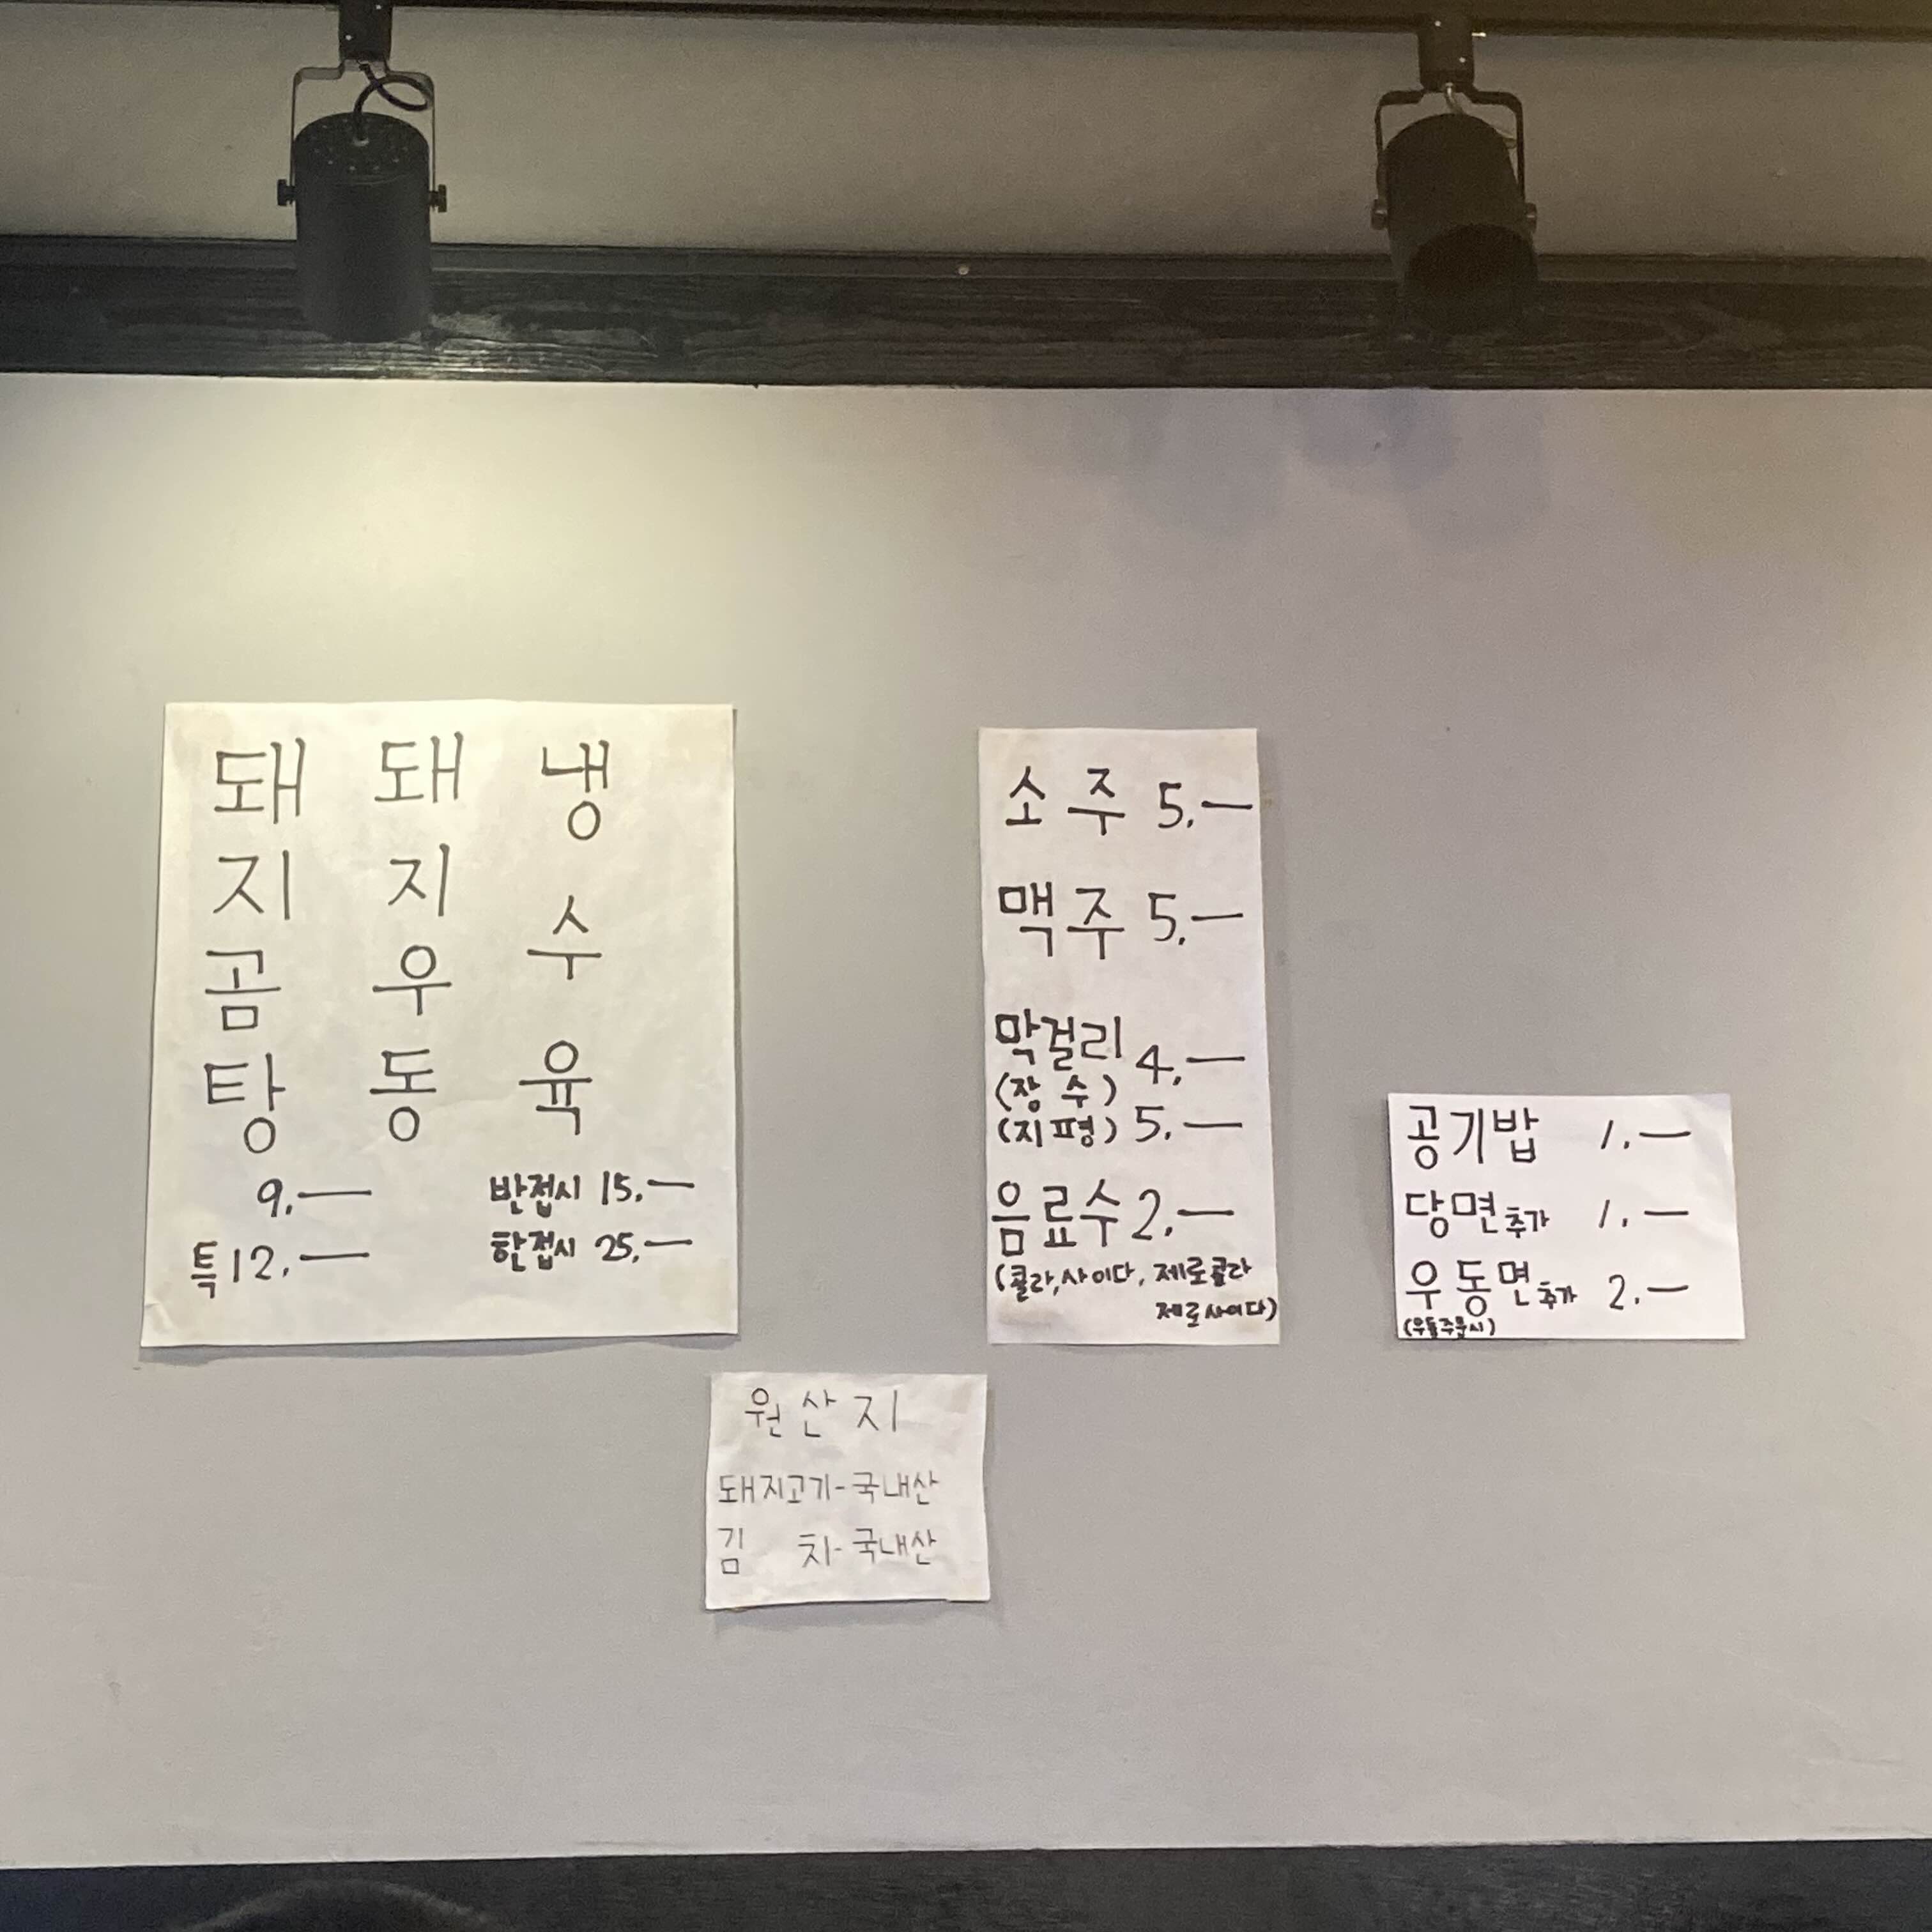 돼지곰탕
돼지우동
냉수육
9.—
특 12.—
반접시 15.—
한접시 25.—
소주 5.—
맥주 5.—
막걸리
(장수) 4.—
(지평) 5.—
음료수 2.—
(콜라, 사이다, 제로콜라
제로사이다)
공기밥 1.—
당면추가 1.—
우동면추가 2.—
(우동주문시)
원산지
돼지고기-국내산
김치-국내산